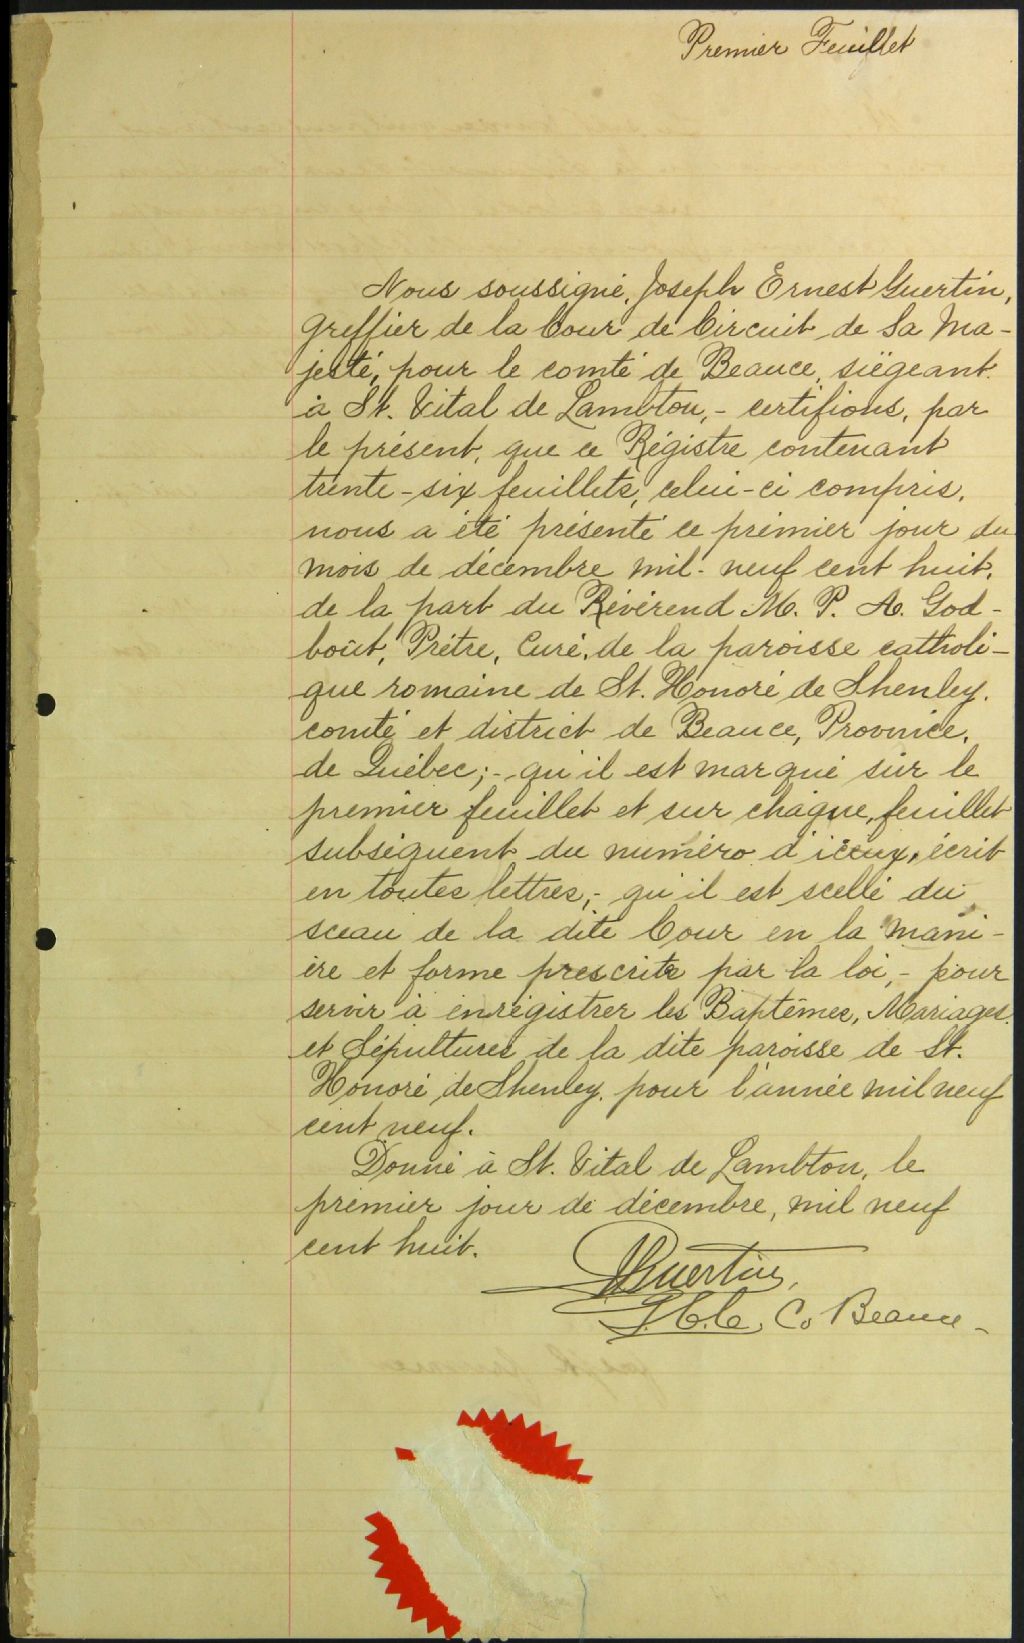 Premier Feuillet
Nous soussigné, Joseph Ernest Guertin,
Greffier de la Cour de Circuit de Sa Ma-
jesté, pour le comté de Beauce, siégeant
à St. Vital de Lambton, - certifions, par
le présent, que ce Régistre contenant
trente-six feuillets, celui-ci compris,
nous a été présenté ce prémier jour du
mois de décembre mil-neuf cent huit,
de la part du Révérend M. P. A. God-
bout, Prêtre, Curé, de la paroisse catholi-
que romaine de St. Honoré de Shenley,
comté et district de Beauce, Province,
de Québec; - qu'il est marqué sur le
premier feuillet et sur chaque, feuillet
subséquent du numéro d'iceux, écrit
en toutes lettres, - qu'il est scellé du
sceau de la dite Cour en la mani-
ère et forme prescrite par la loi, - pour
servir à enrégistrer les Baptêmes, Mariages,
et Sépultures de la dite paroisse de St.
Honoré de Shenley, pour l'année mil neuf
cent neuf.
Donné à St. Vital de Lambton, le
prémier jour de décembre, mil neuf
cent huit.
Guertin,
G.C.C. Co Beauce -